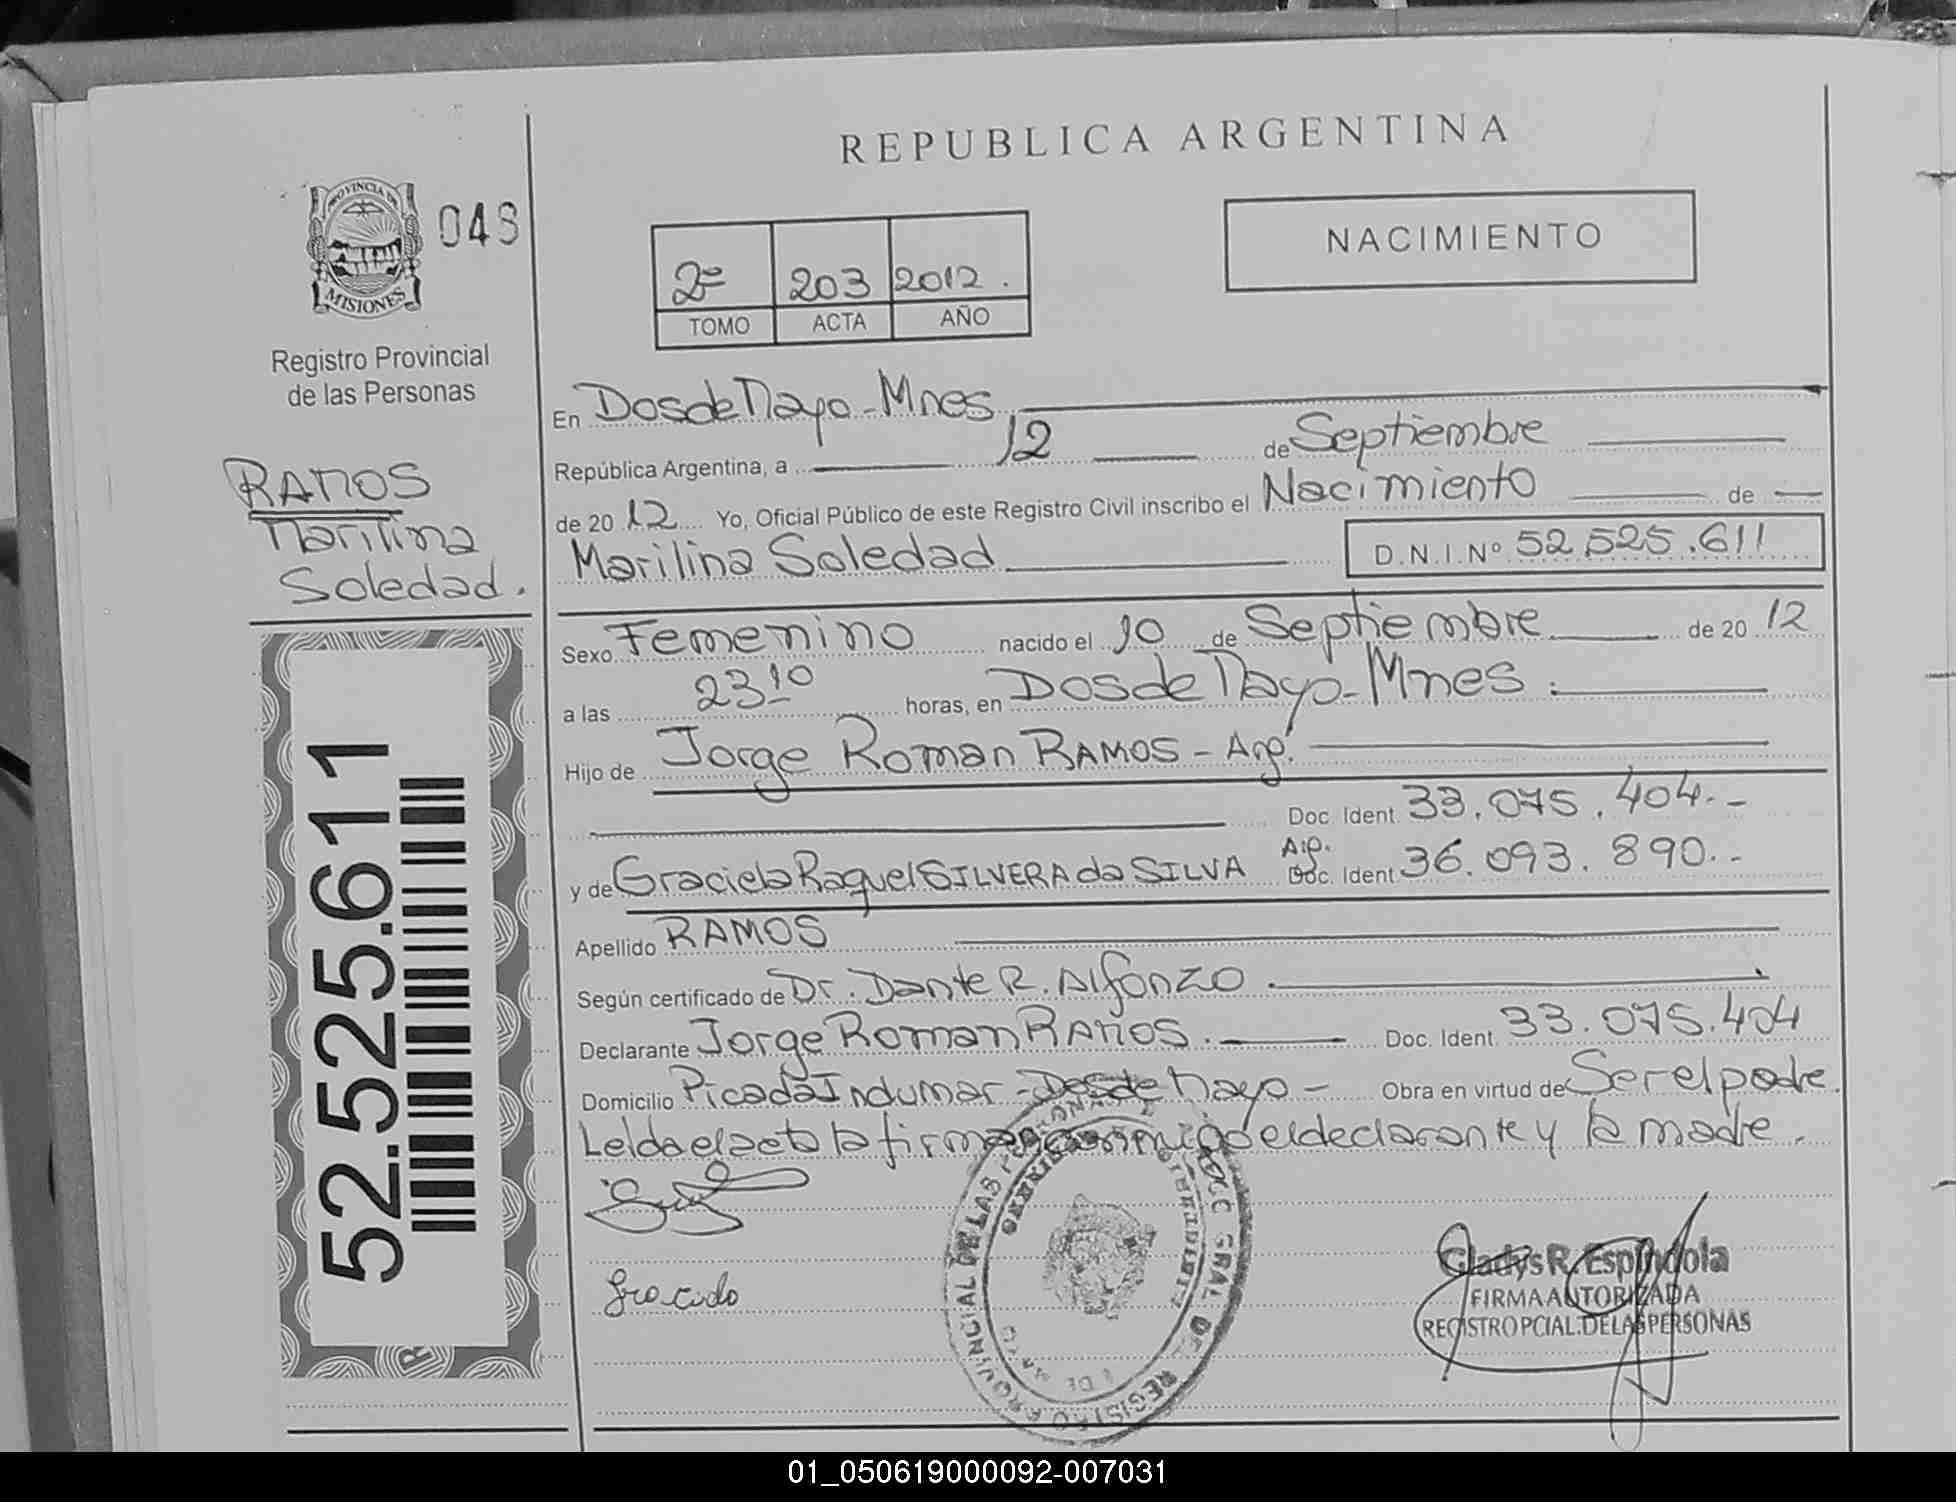 REPUBLICA ARGENTINA
PROVINCIA DE
MISIONES
048
Registro Provincial
de las Personas
RAMOS
Marilina
Soledad.
52.525.611
2º 203 2012.
TOMO ACTA AÑO
NACIMIENTO
En Dos de Mayo - Mnes
República Argentina, a 12 de Septiembre
de 2012 Yo, Oficial Público de este Registro Civil inscribo el Nacimiento de
Marilina Soledad D.N.I.Nº 52.525.611
Sexo Femenino nacido el 10 de Septiembre de 2012
a las 23:10 horas, en Dos de Mayo - Mnes.
Hijo de Jorge Roman RAMOS - Arg.
Doc. Ident 33.075.404.-
y de Graciela Raquel SILVERA da SILVA Arg. Doc. Ident 36.093.890.-
Apellido RAMOS
Según certificado de Dr. Dante R. Alfonzo.
Declarante Jorge Roman RAMOS. Doc. Ident. 33.075.404
Domicilio Picada Indumar - Dos de Mayo - Obra en virtud de Ser el padre
Leída el acta la firman conmigo el declarante y la madre.
Graciela
REGISTRO PROVINCIAL DE LAS
GRAL DEL
Gladys R. Espindola
FIRMA AUTORIZADA
REGISTRO PCIAL. DE LAS PERSONAS
01_050619000092-007031